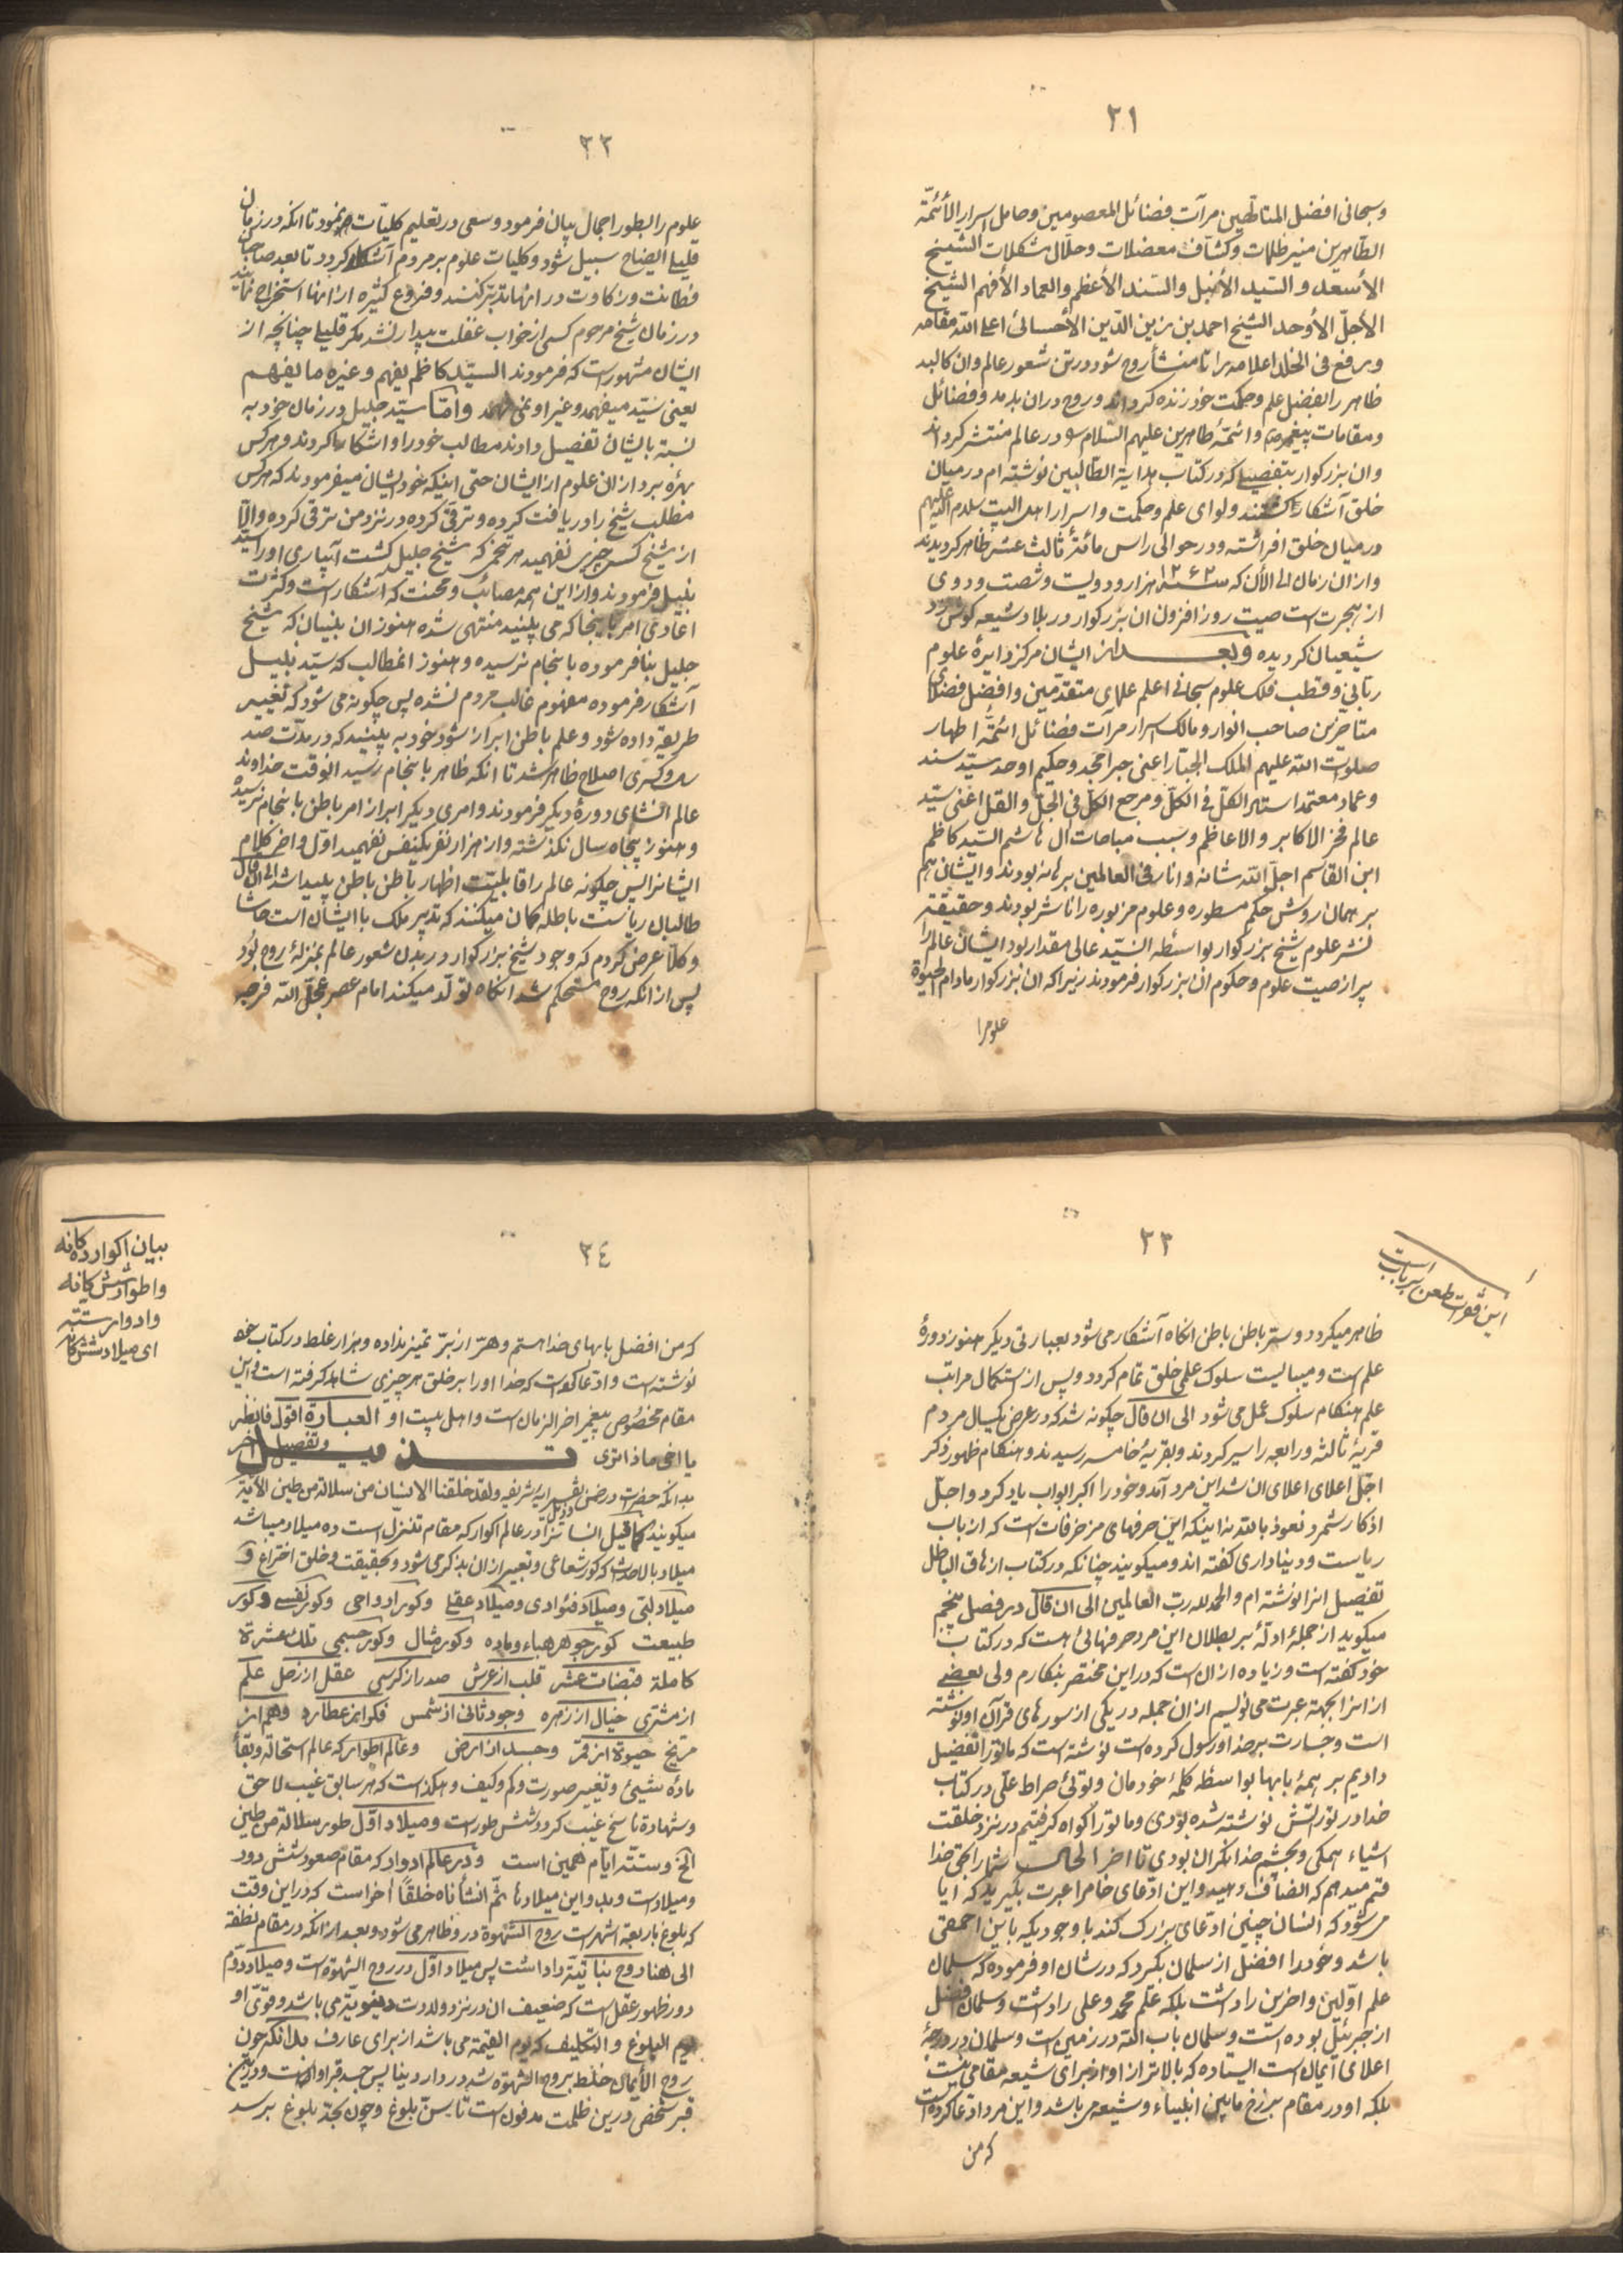 ٣١
وسبحانی افضل المتألهین مرآت فضائل المعصومین وحامل اسرار الأئمّة
الطّاهرین منیر ظلمات وکشّاف معضلات وحلّال مشکلات الشیخ
الأسعد والسّید الأنبل والسّند الأعظم والعماد الأفهم الشیخ
الأجلّ الأوحد الشیخ احمد بن زین الدّین الأحسائی اعلی اللّه مقامه
ورفع فی الخلد اعلامه را تا منشأ روح شود در تن شعور عالم وان کالبد
ظاهر را بفضل علم وحکمت خود زنده کرداند وروح دران بدمد وفضائل
ومقامات پیغمبر ص وائمّهٔ طاهرین علیهم السّلام در عالم منتشر کرداند
وان بزرکوار بتفصیلی که در کتاب هدایة الطّالبین نوشته ام در میان
خلق آشکار کشتند ولوای علم وحکمت واسرار اهل البیت سلام الله علیهم
در میان خلق افراشته ودر حوالی راس مائهٔ ثالث عشر ظاهر کردیدند
وازان زمان الی الأن که سنه ١٢٦٢ هزار ودویست وشصت ودوی
از هجرت است صیت روز افزون ان بزرکوار در بلاد شیعه کوش زد
شیعیان کردیده وبعد از ایشان مرکز دایرهٔ علوم
ربانی وقطب فلک علوم سبحانی اعلم علمای متقدّمین وافضل فضلای
متاخّرین صاحب انوار ومالک اسرار مرآت فضائل ائمّهٔ اطهار
صلوات اللّه علیهم الملک الجبّار اعنی حبر امجد وحکیم اوحد سیّد سند
وعماد معتمد استاد الکلّ فی الکلّ ومرجع الکلّ فی الجلّ والقلّ اعنی سیّد
عالم فخر الاکابر والاعاظم وسبب مباهات ال هاشم السّید کاظم
ابن القاسم اجلّ اللّه شانه وانار فی العالمین برهانه بودند وایشان هم
بر همان روش حکم مسطوره وعلوم مزبوره را ناشر بودند وحقیقة
نشر علوم شیخ بزرکوار بواسطه السّید عالی مقدار بود ایشان عالم را
پر از صیت علوم وحکم ان بزرکوار فرمودند زیرا که ان بزرکوار مادام الحیوة
علوم را
٣٢
علوم را بطور اجمال بیان فرمود وسعی در تعلیم کلیّات نمود تا انکه در زمان
قلیلی ایضاح سبیل شود وکلیات علوم بر مردم آشکار کردد تا بعد صاحبان
فطانت وذکاوت در انها تدبّر کنند وفروع کثیره از انها استخراج نمایند
در زمان شیخ مرحوم کسی از خواب غفلت بیدار نشد مکر قلیلی چنانچه از
ایشان مشهور است که فرمودند السیّد کاظم یفهم وغیره ما یفهم
یعنی سیّد میفهمد وغیر او نمی فهمد وامّا سیّد جلیل در زمان خود به
نسبة بایشان تفصیل دادند مطالب خود را واشکار ها کردند وهر کس
بهرهٔ برد ازان علوم از ایشان حتی اینکه خود ایشان میفرمودند که هر کس
مطلب شیخ را دریافت کرده وترقّی کرده در نزد من ترقی کرده والّا
از شیخ کسی چیزی نفهمید هر تخمی که شیخ جلیل کشت آبیاری او را سیّد
نبیل فرمودند وازاین همه مصائب ومحنت که آشکار است وکثرت
اعادی امر باینجا که می بینید منتهی شده هنوز ان بنیان که شیخ
جلیل بنا فرموده بانجام نرسیده وهنوز انمطالب که سیّد نبیل
آشکار فرموده مفهوم غالب مردم نشده پس چکونه می شود که تغییر
طریقه داده شود وعلم باطن ابراز شود خود به بینید که در مدّت صد
سال وکسری اصلاح ظاهر شد تا انکه ظاهر بانجام رسید انوقت خداوند
عالم انشای دورهٔ دیکر فرمودند وامری دیکر ابراز امر باطن بانجام نرسیده
وهنوز پنجاه سال نکذشته واز هزار نفر یکنفس نفهمید اوّل واخر کلام
ایشانرا پس چکونه عالم را قابلیّت اظهار باطن باطن پیدا شد الی ان قال
طالبان ریاست باطله کمان میکنند که تدبیر ملک با ایشان است حاشا
وکلّا عرض کردم که وجود شیخ بزرکوار در بدن شعور عالم بمنزلهٔ روح بود
پس از انکه روح مستحکم شد انکاه تولّد میکند امام عصر عجّل اللّه فرجه
٣٣
این فقرات طعن بر باب است
ظاهر میکردد وسرّ باطن باطن انکاه آشکار می شود بعبارتی دیکر هنوز دورهٔ
علم است ومیبایست سلوک علمی خلق تمام کردد وپس از استکمال مراتب
علم هنکام سلوک عمل می شود الی ان قال چکونه شد که در عرض یکسال مردم
قریهٔ ثالثه ورابعه را سیر کردند وبقریهٔ خامسه رسیدند وهنکام ظهور ذکر
اجلّ اعلای اعلای ان شد این مرد آمد وخود را اکبر ابواب یاد کرد واجلّ
اذکار شمرد نعوذ باللّه نه اینکه این حرفهای مزخرفات است که از باب
ریاست ودنیاداری کفته اند ومیکویند چنانکه در کتاب ازهاق الباطل
تفصیل انرا نوشته ام والحمد للّه ربّ العالمین الی ان قال در فصل پنجم
میکوید از جملهٔ ادلّهٔ بر بطلان این مرد حرفهائی است که در کتاب
خود کفته است وزیاده از ان است که در این مختصر بنکارم ولی بعضی
از انرا بجهة عبرت می نویسم از ان جمله در یکی از سوره های قرآن او نوشته
است وجسارت بر خدا ورسول کرده است نوشته است که ما تو را تفضیل
دادیم بر همهٔ بابها بواسطه کلمهٔ خودمان وتوئی صراط علّی در کتاب
خدا در تو را تش نوشته شده بودی وما تو را کواه کرفتیم در نزد خلقت
اشیاء همکی وبچشم خدا نکران بودی تا اخر الحال شما را بحق خدا
قسم میدهم که انصاف دهید واین ادّعای خام را عبرت بکیرید که ایا
می شود که انسان چنین ادّعای بزرک کند با وجودیکه باین احمقی
باشد وخود را افضل از سلمان بکیرد که در شان او فرموده که سلمان
علم اوّلین واخرین را داشت بلکه علم محمّد وعلی را داشت وسلمان افضل
از جبرئیل بوده است وسلمان باب اللّه در زمین است وسلمان در درجهٔ
اعلای ایمان است ایستاده که بالاتر از او از برای شیعه مقامی نیست
بلکه او در مقام برزخ مابین انبیاء وشیعه می باشد واین مرد ادّعا کرده است
که من
٣٤
بیان اکوار ده کانه
واطوار شش کانه
وادوار ستّه
ای میلاد شش کانه
که من افضل بابهای خدا هستم وهرّ از برّ تمیز نداده وهزار غلط در کتاب خود
نوشته است وادّعا کرده است که خدا او را بر خلق هر چیزی شاهد کرفته است واین
مقام مخصوص پیغمبر اخر الزمان است واهل بیت او العبارة اقول فانظر
یا اخی ماذا تری تذییل وتفصیل اخر
بدانکه حضرات در ضمن تفسیر ایه شریفه ولقد خلقنا الانسان من سلالة من طین الآیة
میکویند کما قیل انسان را در عالم اکوار که مقام تنزل است ده میلاد میباشد
میلاد بالاحداث که کور شعاعی وتعبیر از ان بذکر می شود وبحقیقت وخلق اختراع و
میلاد لبّی ومیلاد فئوادی ومیلاد عقلی وکور ارواحی وکور نفسی وکور
طبیعت کور جوهر هباء وماده وکور مثال وکور جسمی تلک عشرة
کاملة قبضات عشر قلب از عرش صدر از کرسی عقل از زحل علم
از مشتری خیال از زهره وجود ثانی از شمس فکر از عطارد وهم از
مریخ حیوة از قمر وجسد از ارض وعالم اطوار که عالم استحاله وبقاء
مادهٔ شیئی وتغییر صورت وکم وکیف وهکذا است که هر سابق غیب لاحق
وشهادة ناسخ غیب کردد شش طور است ومیلاد اوّل طور سلالة من طین
الخ وستّه ایّام همین است ودر عالم ادوار که مقام صعود شش دور
ومیلاد است وبدو این میلاد ها ثمّ انشأناه خلقًا اخر است که در این وقت
که بلوغ باربعة اشهر است روح الشّهوة در و ظاهر می شود وبعد از انکه در مقام نطفه
الی هنا روح نباتیّه را داشت پس میلاد اوّل در روح الشهوة است ومیلاد دوّم
دور ظهور عقل است که ضعیف ان در نزد ولادت دنیویّه می باشد وقوّی او
یوم البلوغ والتکلیف که یوم القیمة می باشد از برای عارف بدانکه چون
روح الأیمان خلط بروح الشهوة شد در دار دنیا پس جسد قبر او است ودر این
قبر شخص در این ظلمت مدفون است تا بسنّ بلوغ وچون بحدّ بلوغ برسد